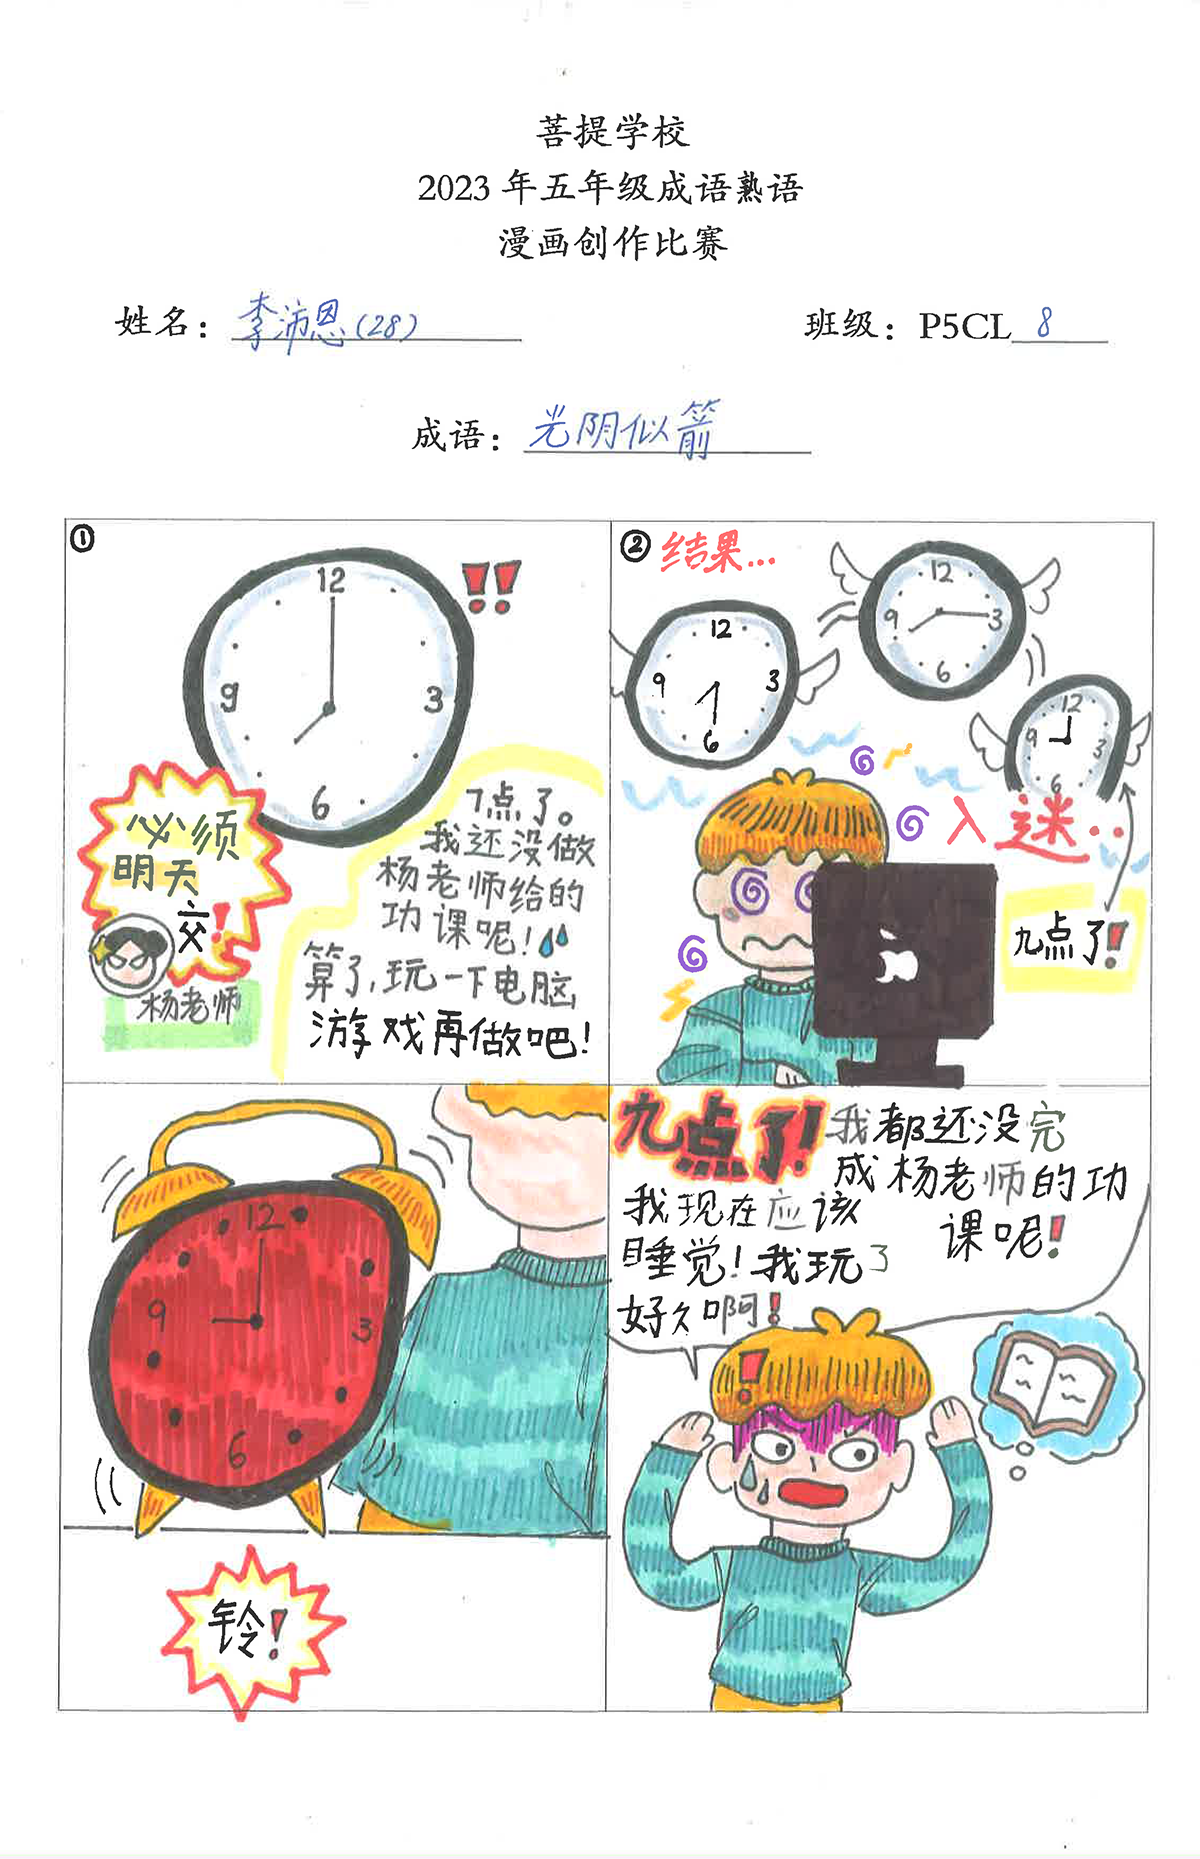 菩提学校
2023 年五年级成语熟语
漫画创作比赛
姓名：李沛恩(28)
班级：P5CL 8
成语：光阴似箭
①
12
9
3
6
!!
必须
明天
交!
杨老师
7点了。
我还没做
杨老师给的
功课呢!
算了,玩一下电脑
游戏再做吧!
② 结果...
12
9
3
6
12
9
3
6
12
9
3
6
入迷..
九点了!
12
9
3
6
铃!
九点了!
我都还没完
成杨老师的功
课呢!
我现在应该
睡觉!我玩了
好久啊!
!